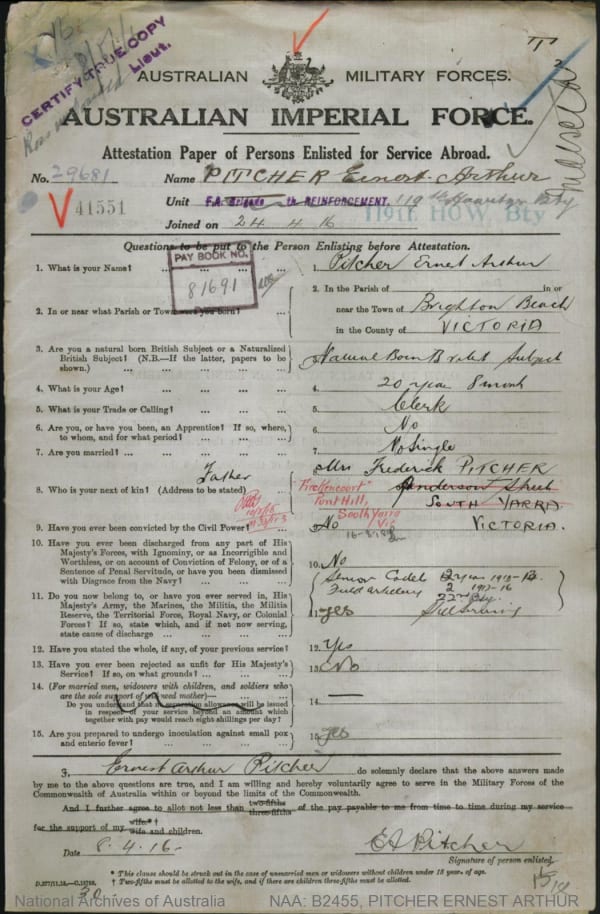 CERTIFY TRUE COPY
Lieut.
AUSTRALIAN MILITARY FORCES.
AUSTRALIAN IMPERIAL FORCE.
Attestation Paper of Persons Enlisted for Service Abroad.
No. 29681 Name PITCHER Ernest Arthur
41551
Unit F.A. Brigade th REINFORCEMENT. 119th Howitzer Bty
119th HOW. Bty
Joined on 24 4 16
Questions to be put to the Person Enlisting before Attestation.
PAY BOOK NO.
81691
1. What is your Name? ... ... 1. Pitcher Ernest Arthur
2. In or near what Parish or Town were you born? ... 2. In the Parish of in or
near the Town of Brighton Beach
in the County of VICTORIA
3. Are you a natural born British Subject or a Naturalized
British Subject? (N.B.—If the latter, papers to be
shown.) ... ... 3. Natural Born British Subject
4. What is your Age? ... ... 4. 20 year 8 month
5. What is your Trade or Calling? ... ... 5. Clerk
6. Are you, or have you been, an Apprentice? If so, where,
to whom, and for what period? ... ... 6. No
7. Are you married? ... ... 7. No Single
Father
8. Who is your next of kin? (Address to be stated) ... 8. Mrs Frederick PITCHER
Anderson Street
SOUTH YARRA
VICTORIA.
Punt Hill,
South Yarra
Vic
9. Have you ever been convicted by the Civil Power? ... No
10. Have you ever been discharged from any part of His
Majesty's Forces, with Ignominy, or as Incorrigible and
Worthless, or on account of Conviction of Felony, or of a
Sentence of Penal Servitude, or have you been dismissed
with Disgrace from the Navy? ... ... 10. No
11. Do you now belong to, or have you ever served in, His
Majesty's Army, the Marines, the Militia, the Militia
Reserve, the Territorial Force, Royal Navy, or Colonial
Forces? If so, state which, and if not now serving,
state cause of discharge ... ... 11. yes
Senior Cadet 2 year 1912-13
Field Artillery 2 1913-16
22nd Bty.
Still Serving
12. Have you stated the whole, if any, of your previous service? 12. Yes
13. Have you ever been rejected as unfit for His Majesty's
Service? If so, on what grounds? ... ... 13. No
14. (For married men, widowers with children, and soldiers who
are the sole support of widowed mother)—
Do you understand that no separation allowance will be issued
in respect of your service beyond an amount which
together with pay would reach eight shillings per day? 14. —
15. Are you prepared to undergo inoculation against small pox
and enteric fever? ... ... 15. yes
I, Ernest Arthur Pitcher do solemnly declare that the above answers made
by me to the above questions are true, and I am willing and hereby voluntarily agree to serve in the Military Forces of the
Commonwealth of Australia within or beyond the limits of the Commonwealth.
And I further agree to allot not less than two-fifths three-fifths of the pay payable to me from time to time during my service
for the support of my wife.* † wife and children.
Date 8.4.16. E A Pitcher
Signature of person enlisted.
* This clause should be struck out in the case of unmarried men or widowers without children under 18 years of age.
† Two-fifths must be allotted to the wife, and if there are children three-fifths must be allotted.
National Archives of Australia NAA: B2455, PITCHER ERNEST ARTHUR